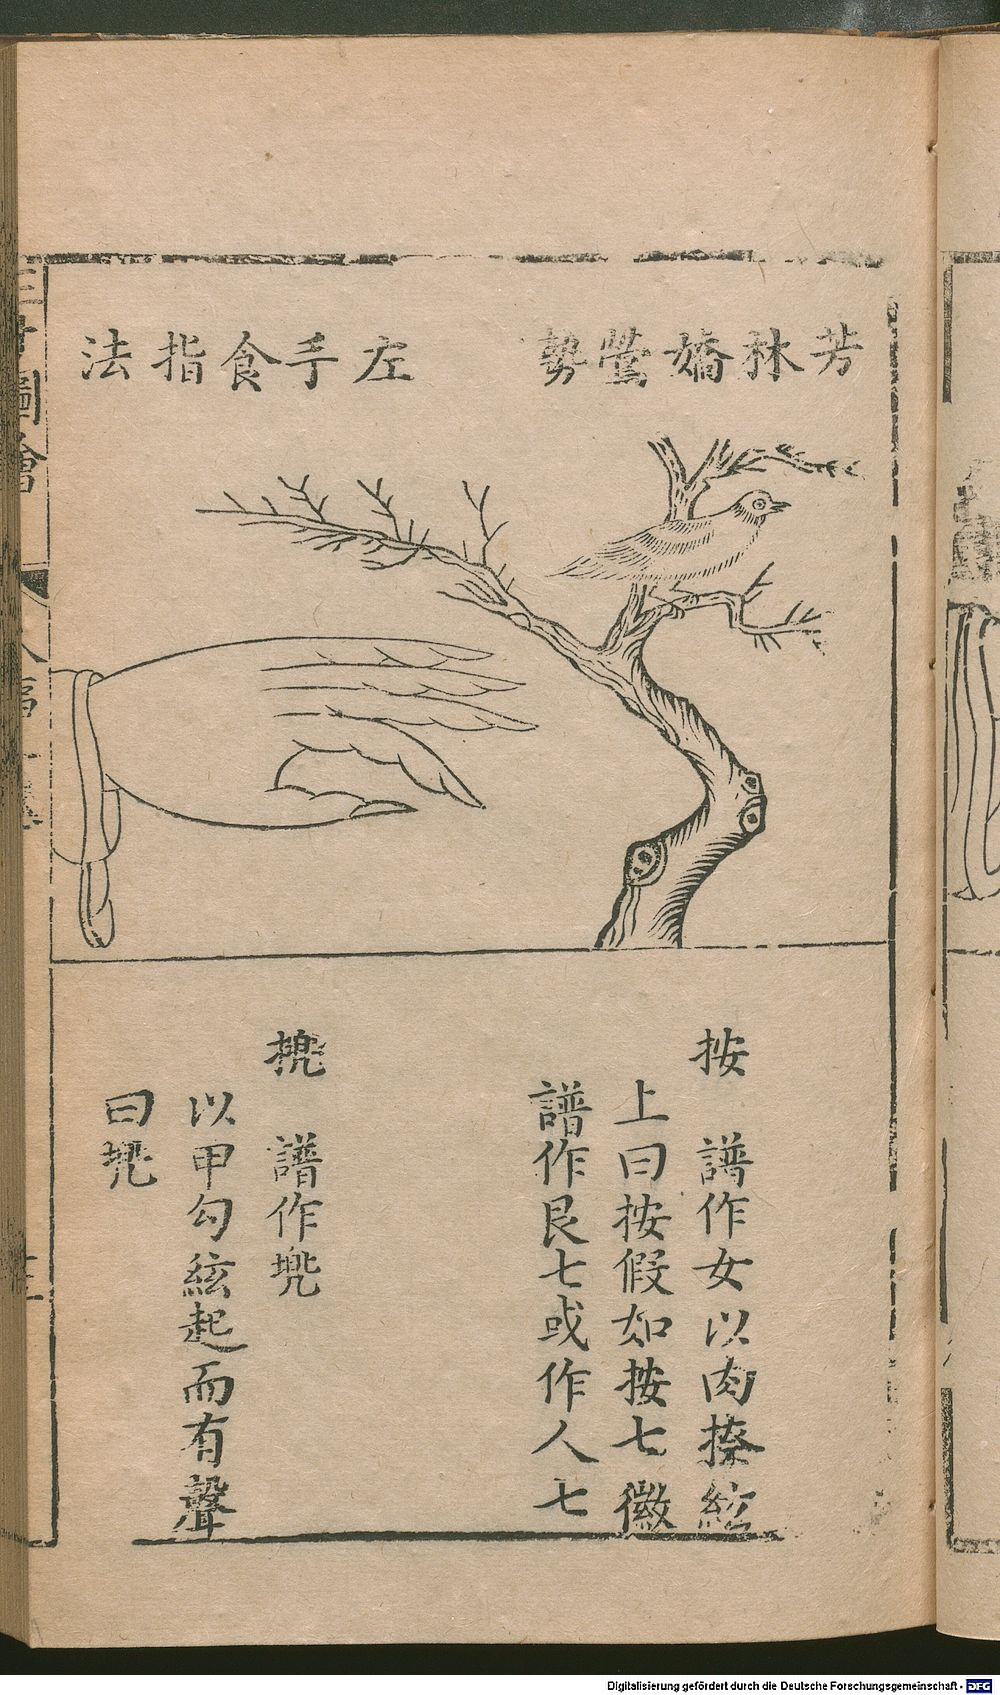 芳林嬌鶯勢
左手食指法
按　譜作女以肉捺絃
上曰按假如按七徽
譜作艮七或作人七
㨪　譜作㙋
以甲勾絃起而有聲
曰㙋
三才圖會
Digitalisierung gefördert durch die Deutsche Forschungsgemeinschaft - DFG